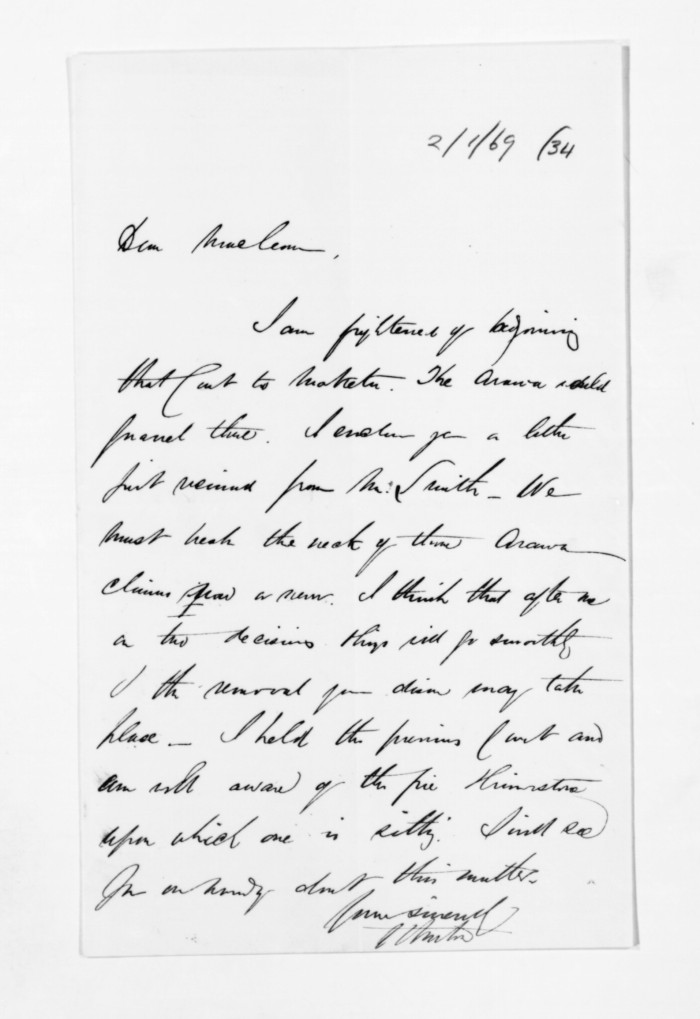 2/1/69 (34
Dear Maclean,
I am frightened of
that Court to Maketu. The Arawa would
quarrel there. I enclose you a letter
just received from Mr. Smith — We
must break the neck of these Arawa
claims now or never. I think that after one
or two decisions things will go smoothly
& the removal you desire may take
place — I held the previous Court and
am well aware of the fire
upon which one is sitting. I will see
you on Monday about this matter.
Yours sincerely